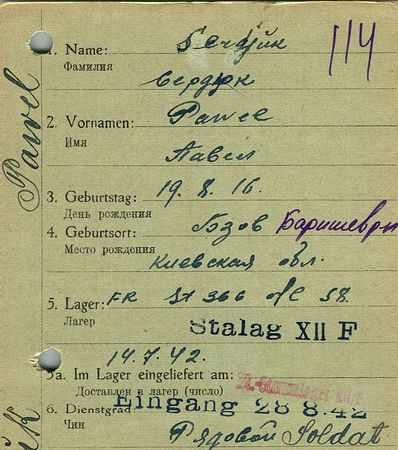 114
1. Name:
Фамилия
2. Vornamen: Pawel
Имя
Павел
3. Geburtstag: 19. 8. 16.
День рождения
4. Geburtsort:
Место рождения
Киевская обл.
5. Lager: FR St 366 № 58.
Лагер
Stalag XII F
14.7.42.
5a. Im Lager eingeliefert am:
Доставлен в лагер (число)
Eingang 28 8.42
6. Dienstgrad:
Чин
Рядовой Soldat
Pawel